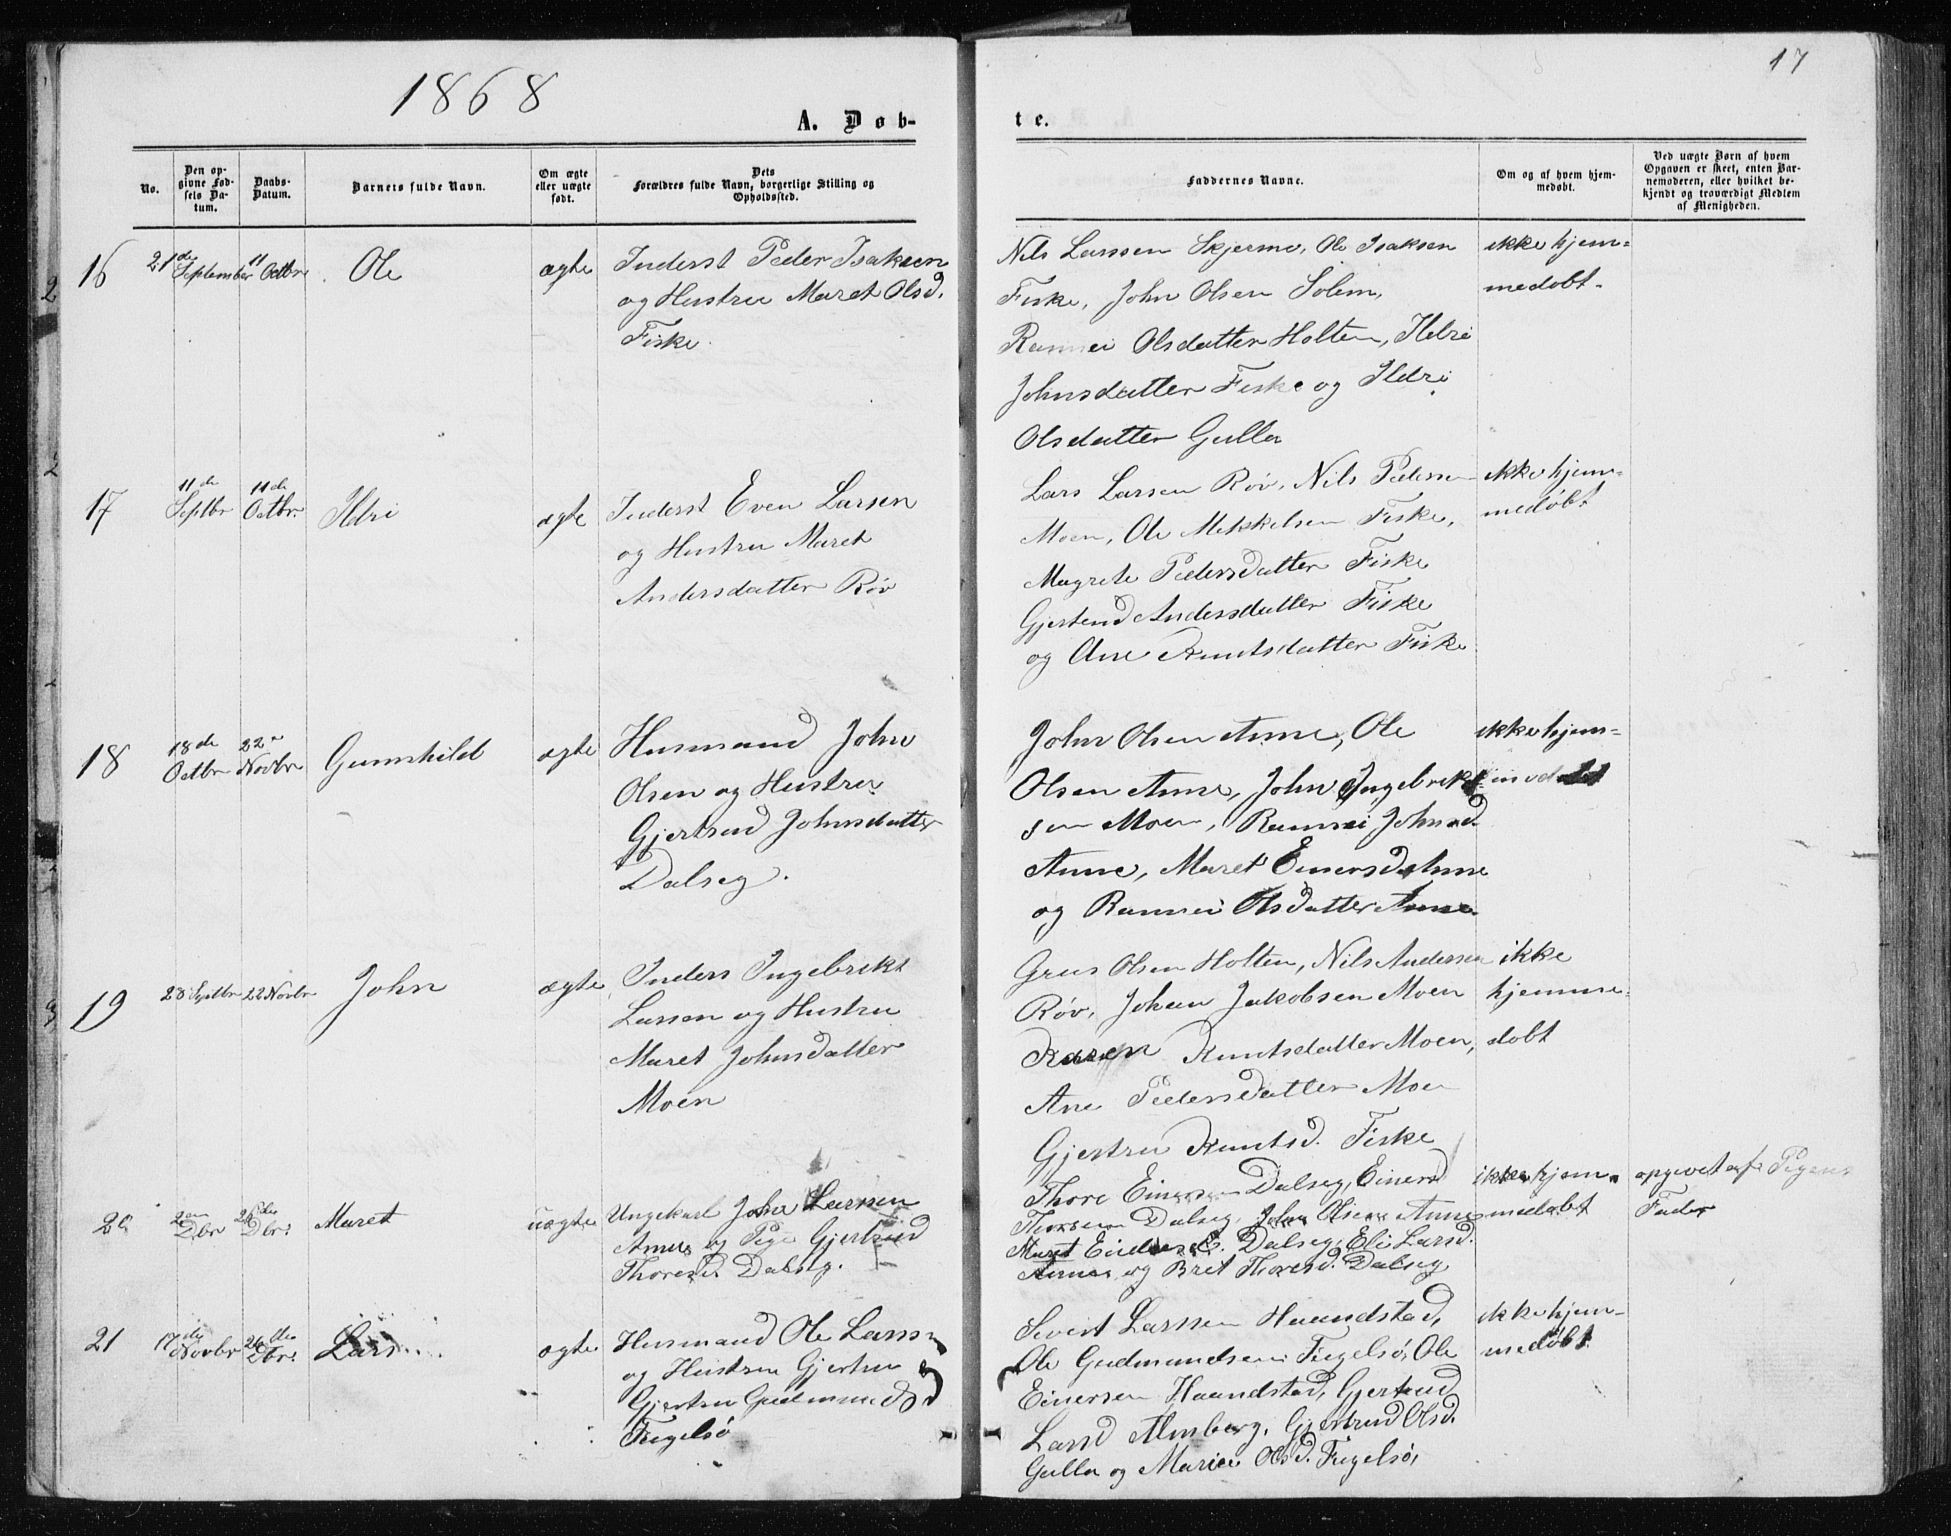 1868
17
A. Døb-
te.
No.
Den op-
givne Fød-
sels Da-
tum.
Daabs-
Datum.
Barnets fulde Navn.
Om ægte
eller uægte
født.
Dets
Forældres fulde Navn, borgerlige Stilling og
Opholdssted.
Faddernes Navne.
Om og af hvem hjem-
medøbt.
Ved uægte Børn af hvem
Opgaven er skeet, enten Bar-
nemoderen, eller hvilket be-
kjendt og troværdigt Medlem
af Menigheden.
16
21de
September
11
Octbr
Ole
ægte
Inderst Peder Isaksen
og Hustru Maret Olsd.
Fiske
Nils Larssen Skjermo, Ole Isaksen
Fiske, John Olsen Solem,
Rannei Olsdatter Holten, Ildri
Johnsdatter Fiske og Ildri
Olsdatter Gulla
ikke hjem=
medøbt.
17
11de
Septbr
11de
Octbr.
Ildri
ægte
Inderst Even Larsen
og Hustru Maret
Andersdatter Røv
Lars Larsen Røv, Nils Pedersen
Moen, Ole Mekkelsen Fiske,
Magrete Pedersdatter Fiske
Gjertrud Andersdatter Fiske
og Ane Knutsdatter Fiske
ikke hjem=
medøbt
18
18de
Octbr
22
Novbr
Gunnhild
ægte
Husmand John
Olsen og Hustru
Gjertrud Johnsdatter
Dalseg.
John Olsen Anne, Ole
Olsen Anne, John Ingebrikt
sen Moen, Rannei Johnsd.
Anne, Maret Einersd Anne
og Rannei Olsdatter Anne.
ikke hjem=
medøbt
19
28 Septbr
22 Novbr
John
ægte
Inders Ingebrikt
Larsen og Hustru
Maret Johnsdatter
Moen
Olsen Holten, Nils Andersen
Røv, Johan Jakobsen Moen
Karen Knutsdatter Moen,
Ane Pedersdatter Moen
Gjertru Knutsd. Fiske
ikke
hjemme=
døbt
20
Dbr
26de
Dbr.
Maret
uægte
Ungekarl John Larssen
Anne og Pige Gjertrud
Thoresd. Dalseg.
Thore Einersen Dalseg, Einer
Thorsen Dalseg, John Olsen Anne
Maret Dalseg, Eli Larsd.
Anne og Bret Thoresd. Dalseg
ikke hjem=
medøbt
opgivet af Pigens
Fader
21
17de
Novbr
26de
Dbr.
Lars
ægte
Husmand Ole Larss
og Hustru Gjertru
Gjertru Gudmundsd
Fugelsø
Sivert Larssen Haandstad,
Ole Gudmundsen Fugelsø, Ole
Einersen Haandstad, Gjertrud
Larsd Almberg, Gjertrud Olsd.
Gulla og Marie Olsd. Fugelsø,
ikke hjem=
medøbt